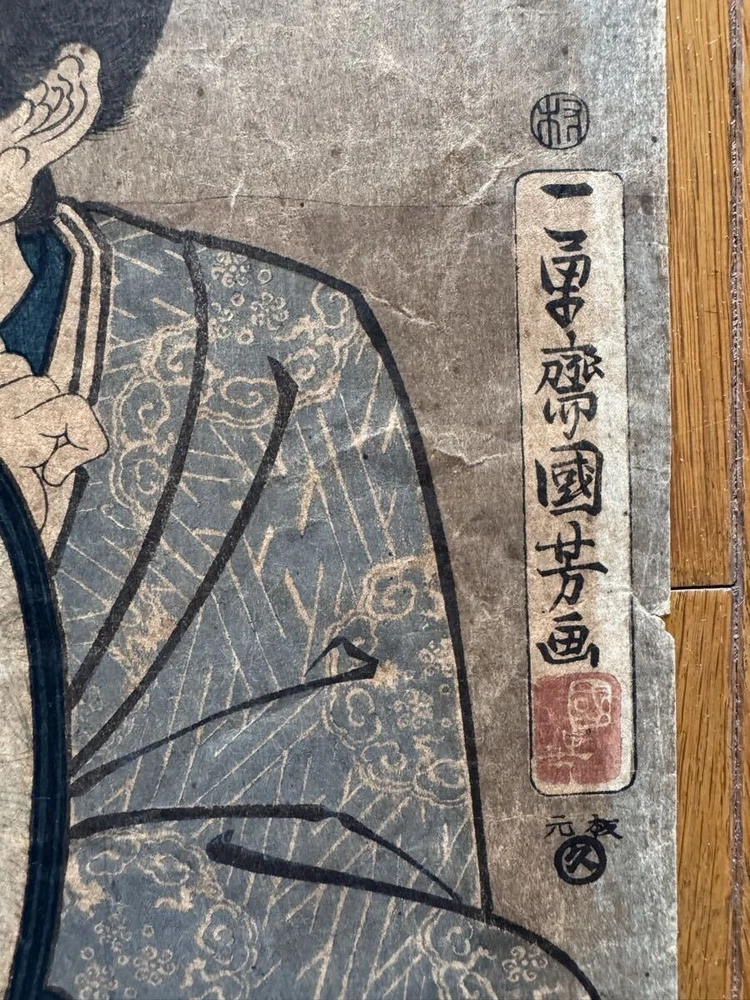 村
一勇齋國芳画
板元
久